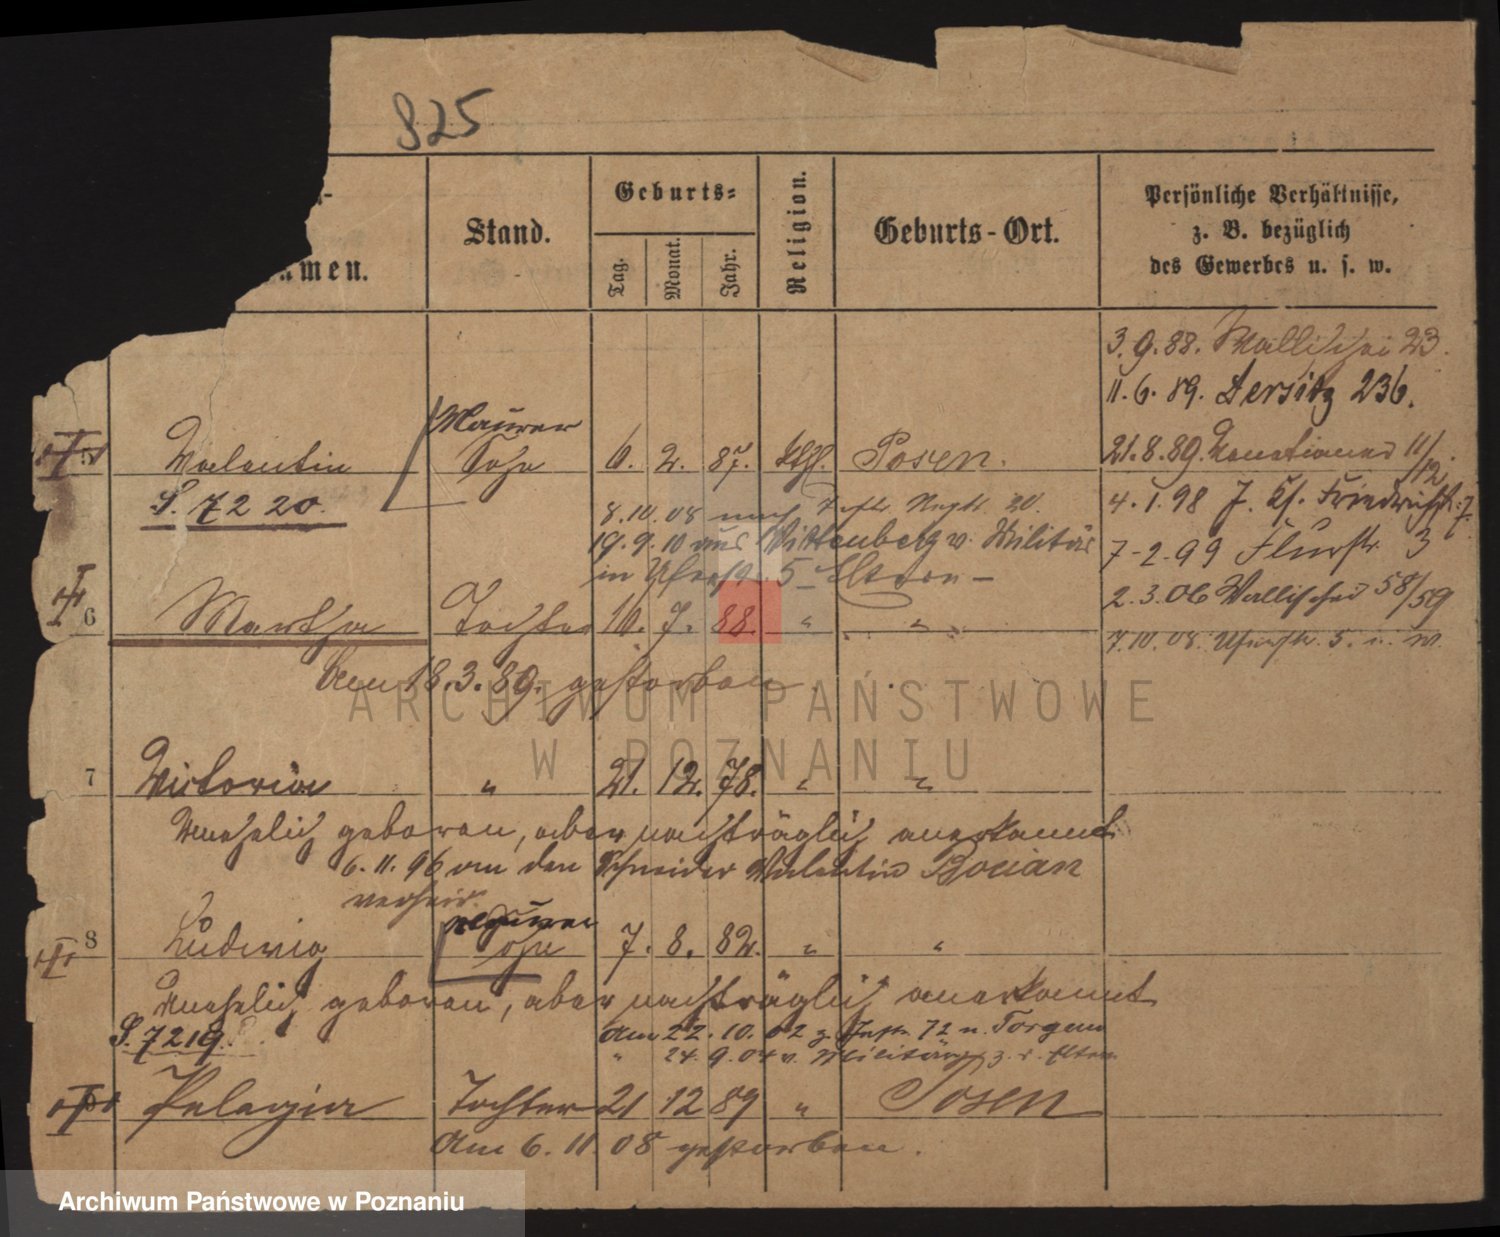 825
amen.
Stand.
Geburts=
Tag.
Monat.
Jahr.
Religion.
Geburts-Ort.
Persönliche Verhältnisse,
z. B. bezüglich
des Gewerbes u. s. w.
3.9.88. Wallischei 23.
11.6.89. Dersitz 236.
Maurer
5 Valentin Sohn 6. 2. 87. kthl. Posen.
21.8.89. 11/12
S. 7220.
4.1.98 Friedrichstr.
8.10.08 nach
19.9.10 aus Wittenberg v. Militär
7-2.99 Flurstr. 3
in Uferstr. 5 Eltern –
2.3.06 Wallischei 58/59
6 Martha Tochter 10. 7. 88. " "
7.10.08. Uferstr. 5.
Am 18.3.89. gestorben
ARCHIWUM PAŃSTWOWE
W POZNANIU
7 Victoria " 21. 12. 78. " "
Unehelich geboren, aber nachträglich anerkannt
6.11.96 an den Schneider Valentin Bocian
verheir.
Maurer
8 Ludwig Sohn 7. 8. 82. " "
Unehelich geboren, aber nachträglich anerkannt
S. 7219.
Am 22.10.02 z. Inf. 72 n. Torgau
" 24.9.04 v. Militär z. d. Eltern
Pelagia Tochter 21 12 89 " Posen
Am 6.11.08 gestorben.
Archiwum Państwowe w Poznaniu